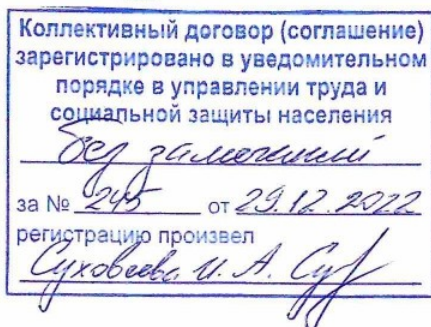 Коллективный договор (соглашение)
зарегистрировано в уведомительном
порядке в управлении труда и
социальной защиты населения
без замечаний
за № 245 от 29.12.2022
регистрацию произвел
Суховеева И. А.